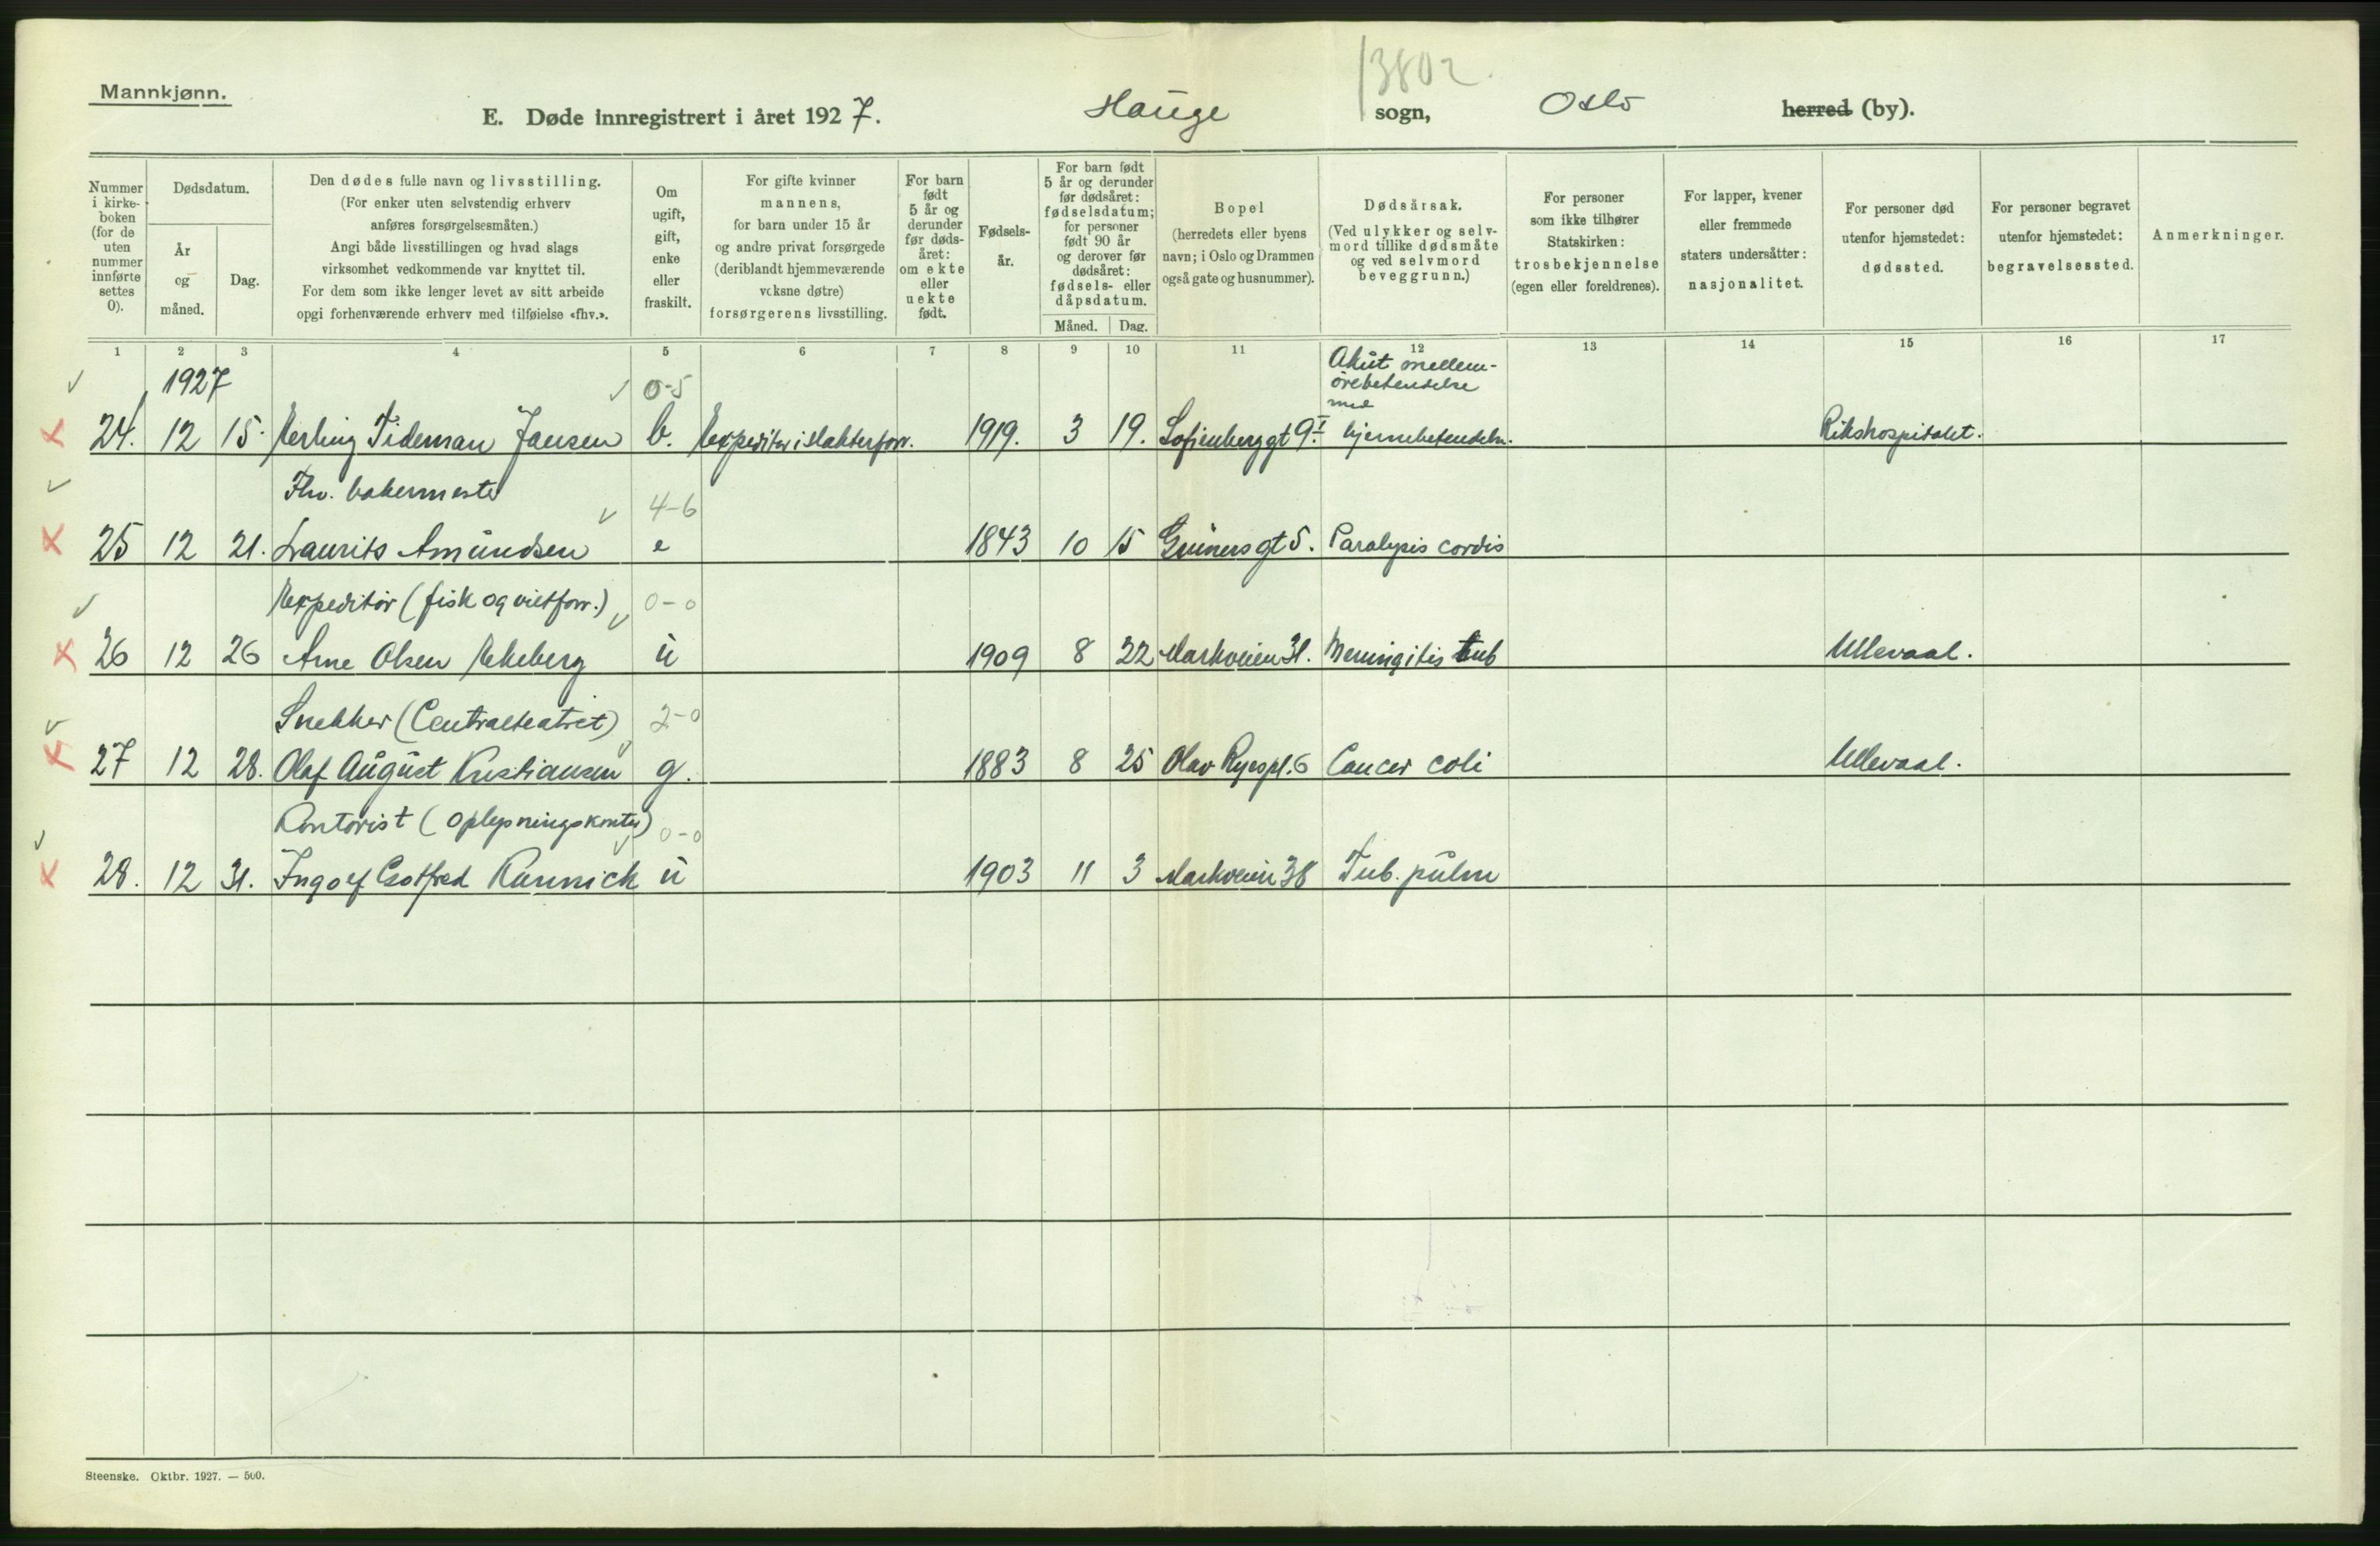 Mannkjønn.
13802.
E. Døde innregistrert i året 1927. Hauge sogn, Oslo herred (by).
Nummer i kirkeboken (for de uten nummer innførte settes 0).
Dødsdatum.
År og måned.
Dag.
Den dødes fulle navn og livsstilling.
(For enker uten selvstendig erhverv
anføres forsørgelsesmåten.)
Angi både livsstillingen og hvad slags
virksomhet vedkommende var knyttet til.
For dem som ikke lenger levet av sitt arbeide
opgi forhenværende erhverv med tilføielse «fhv.».
Om ugift, gift, enke eller fraskilt.
For gifte kvinner
mannens,
for barn under 15 år
og andre privat forsørgede
(deriblandt hjemmeværende
voksne døtre)
forsørgerens livsstilling.
For barn født 5 år og derunder før dødsåret: om ekte eller uekte født.
Fødselsår.
For barn født
5 år og derunder
før dødsåret:
fødselsdatum;
for personer
født 90 år
og derover før
dødsåret:
fødsels- eller
dåpsdatum.
Måned. Dag.
Bopel
(herredets eller byens
navn; i Oslo og Drammen
også gate og husnummer).
Dødsårsak.
(Ved ulykker og selv-
mord tillike dødsmåte
og ved selvmord
beveggrunn.)
For personer
som ikke tilhører
Statskirken:
trosbekjennelse
(egen eller foreldrenes).
For lapper, kvener
eller fremmede
staters undersåtter:
nasjonalitet.
For personer død
utenfor hjemstedet:
dødssted.
For personer begravet
utenfor hjemstedet:
begravelsessted.
Anmerkninger.
1 2 3 4 5 6 7 8 9 10 11 12 13 14 15 16 17
1927 0-5 Akut mellem-
ørebetendelse
med
24. 12 15. Erling Tideman Jansen b. Expeditør i slakterforr. 1919. 3 19. Sofienberggt 9 I hjernebetendelse. Rikshospitalet.
Fhv. bakermester 4-6
25 12 21. Laurits Amundsen e 1843 10 15 Grünersgt 5. Paralysis cordis
Expeditør (fisk og viltforr.) 0-0
26 12 26 Arne Olsen Ekeberg u 1909 8 22 Markveien 31. Meningitis tub Ullevaal.
Snekker (Centralteatret) 2-0
27 12 28. Olaf August Kristiansen g. 1883 8 25 Olav Ryespl. 6 Cancer coli Ullevaal.
Kontorist (Oplysningskontor) 0-0
28. 12 31. Ingolf Gotfred Rannick u 1903 11 3 Markveien 38 Tub. pulm
Steenske. Oktbr. 1927. — 500.